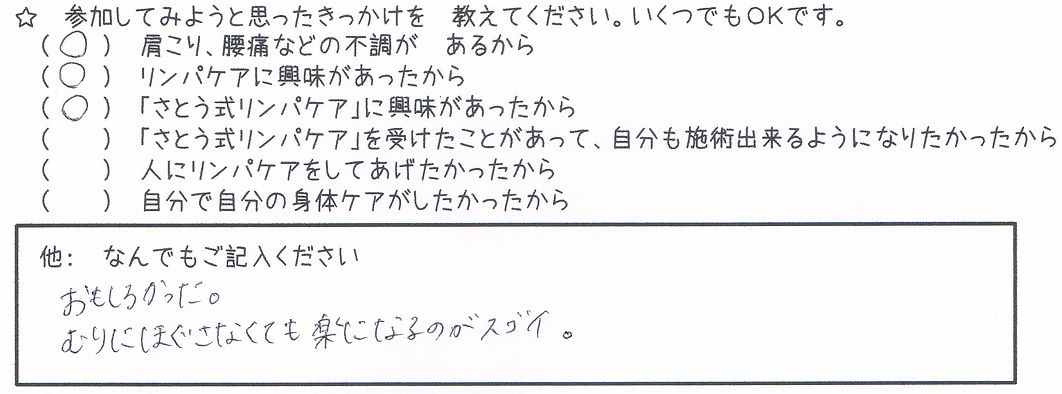 ☆ 参加してみようと思ったきっかけを 教えてください。いくつでもOKです。
(○) 肩こり、腰痛などの不調が あるから
(○) リンパケアに興味があったから
(○) 「さとう式リンパケア」に興味があったから
( ) 「さとう式リンパケア」を受けたことがあって、自分も施術出来るようになりたかったから
( ) 人にリンパケアをしてあげたかったから
( ) 自分で自分の身体ケアがしたかったから
他: なんでもご記入ください
おもしろかった。
むりにほぐさなくても楽になるのがスゴイ。